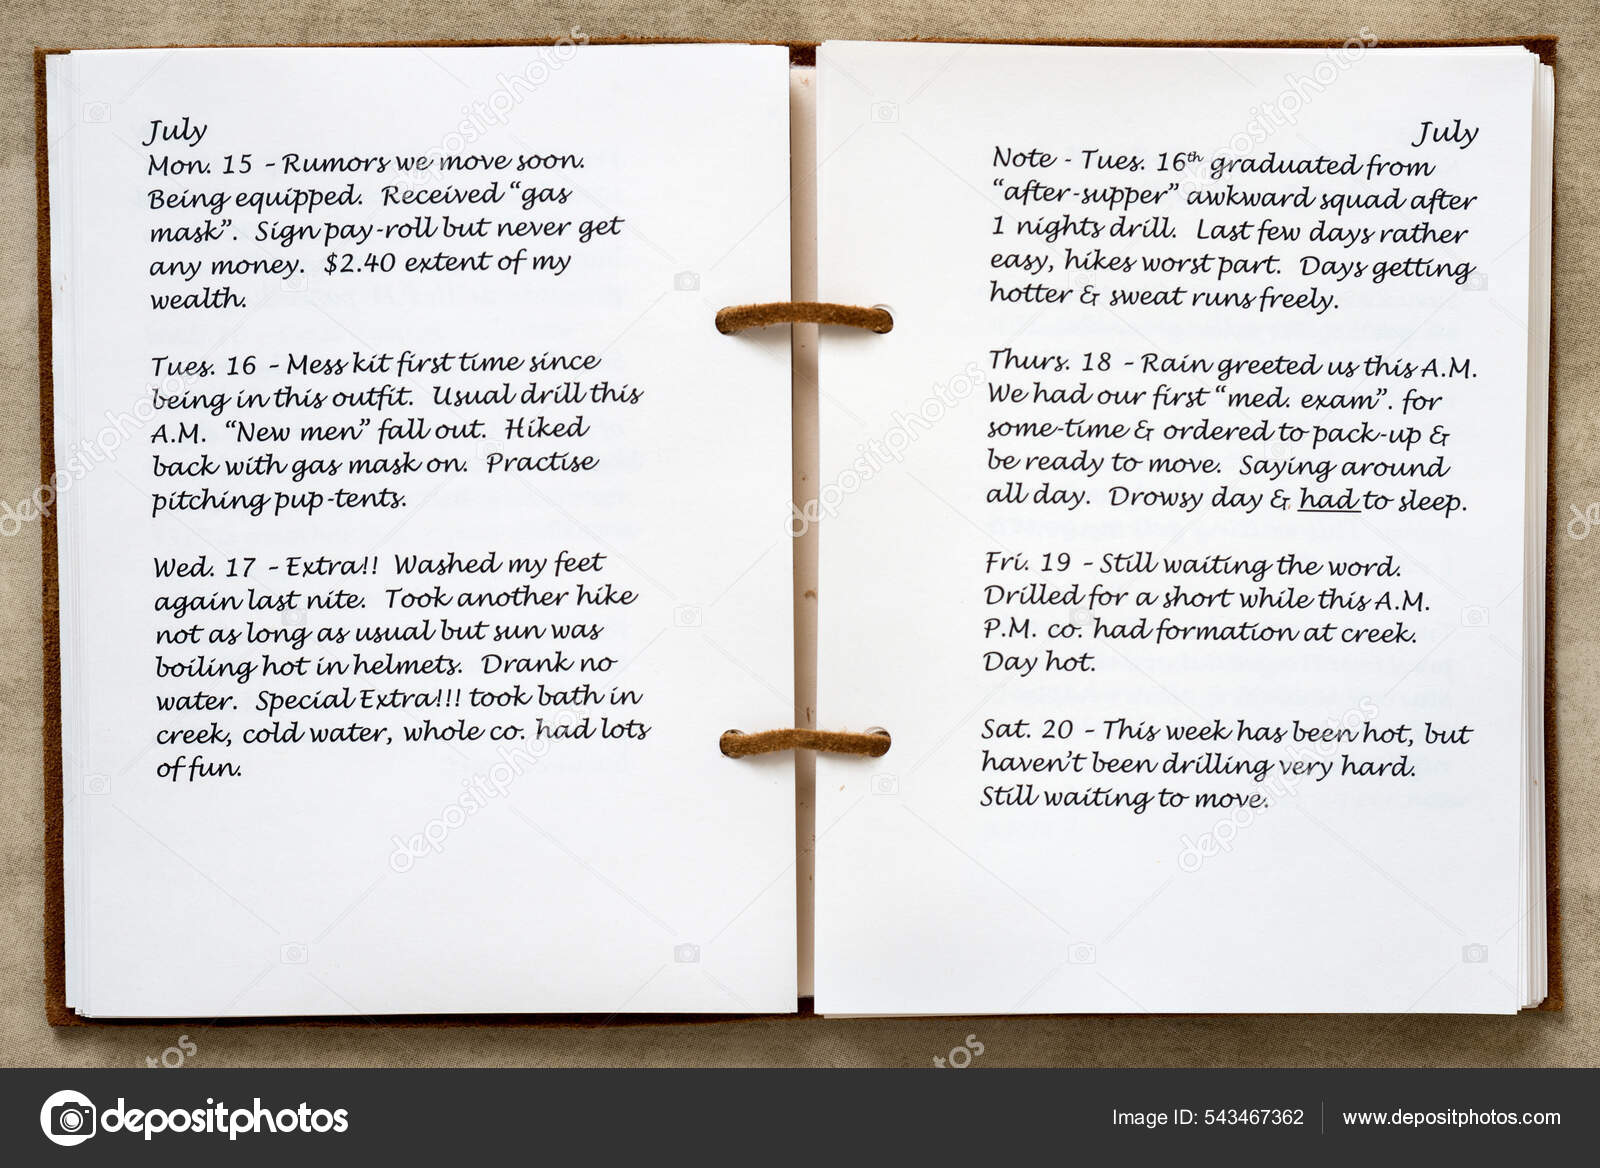 July
Mon. 15 – Rumors we move soon.
Being equipped. Received “gas
mask”. Sign pay-roll but never get
any money. $2.40 extent of my
wealth.
Tues. 16 – Mess kit first time since
being in this outfit. Usual drill this
A.M. “New men” fall out. Hiked
back with gas mask on. Practise
pitching pup-tents.
Wed. 17 – Extra!! Washed my feet
again last nite. Took another hike
not as long as usual but sun was
boiling hot in helmets. Drank no
water. Special Extra!!! took bath in
creek, cold water, whole co. had lots
of fun.
July
Note - Tues. 16th graduated from
“after-supper” awkward squad after
1 nights drill. Last few days rather
easy, hikes worst part. Days getting
hotter & sweat runs freely.
Thurs. 18 – Rain greeted us this A.M.
We had our first “med. exam”. for
some-time & ordered to pack-up &
be ready to move. Saying around
all day. Drowsy day & had to sleep.
Fri. 19 – Still waiting the word.
Drilled for a short while this A.M.
P.M. co. had formation at creek.
Day hot.
Sat. 20 – This week has been hot, but
haven’t been drilling very hard.
Still waiting to move.
depositphotos
Image ID: 543467362
www.depositphotos.com